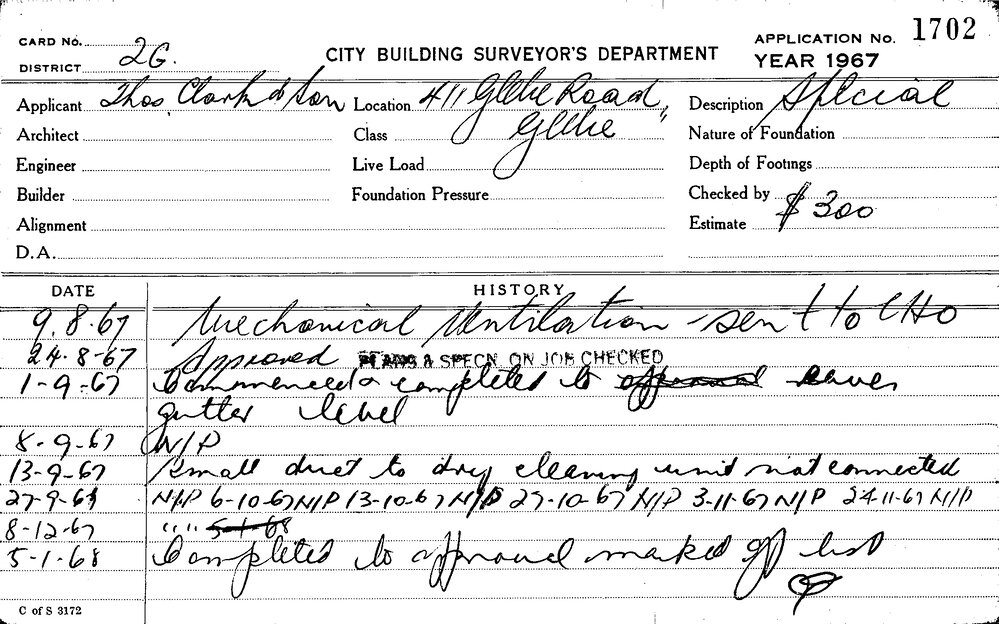 CARD No. 2G.
DISTRICT
CITY BUILDING SURVEYOR'S DEPARTMENT
APPLICATION No. 1702
YEAR 1967
Applicant Thos Clark & Son Location 411 Glebe Road, Description Special
Architect Class Glebe " Nature of Foundation
Engineer Live Load Depth of Footings
Builder Foundation Pressure Checked by
Alignment Estimate $300
D.A.
DATE HISTORY
9.8.67 Mechanical Ventilation - sent to CHO
24.8-67 Approved PLANS & SPECN. ON JOB CHECKED
1-9-67 Commenced & completed to approval eaves
gutter level
8-9-67 N/P
13-9-67 Small duct to dry cleaning unit not connected
27-9-67 N/P 6-10-67 N/P 13-10-67 N/P 27-10-67 N/P 3-11-67 N/P 24-11-67 N/P
8-12-67 " " " " 5-1-68
5-1-68 Completed to approval marked off list
C of S 3172